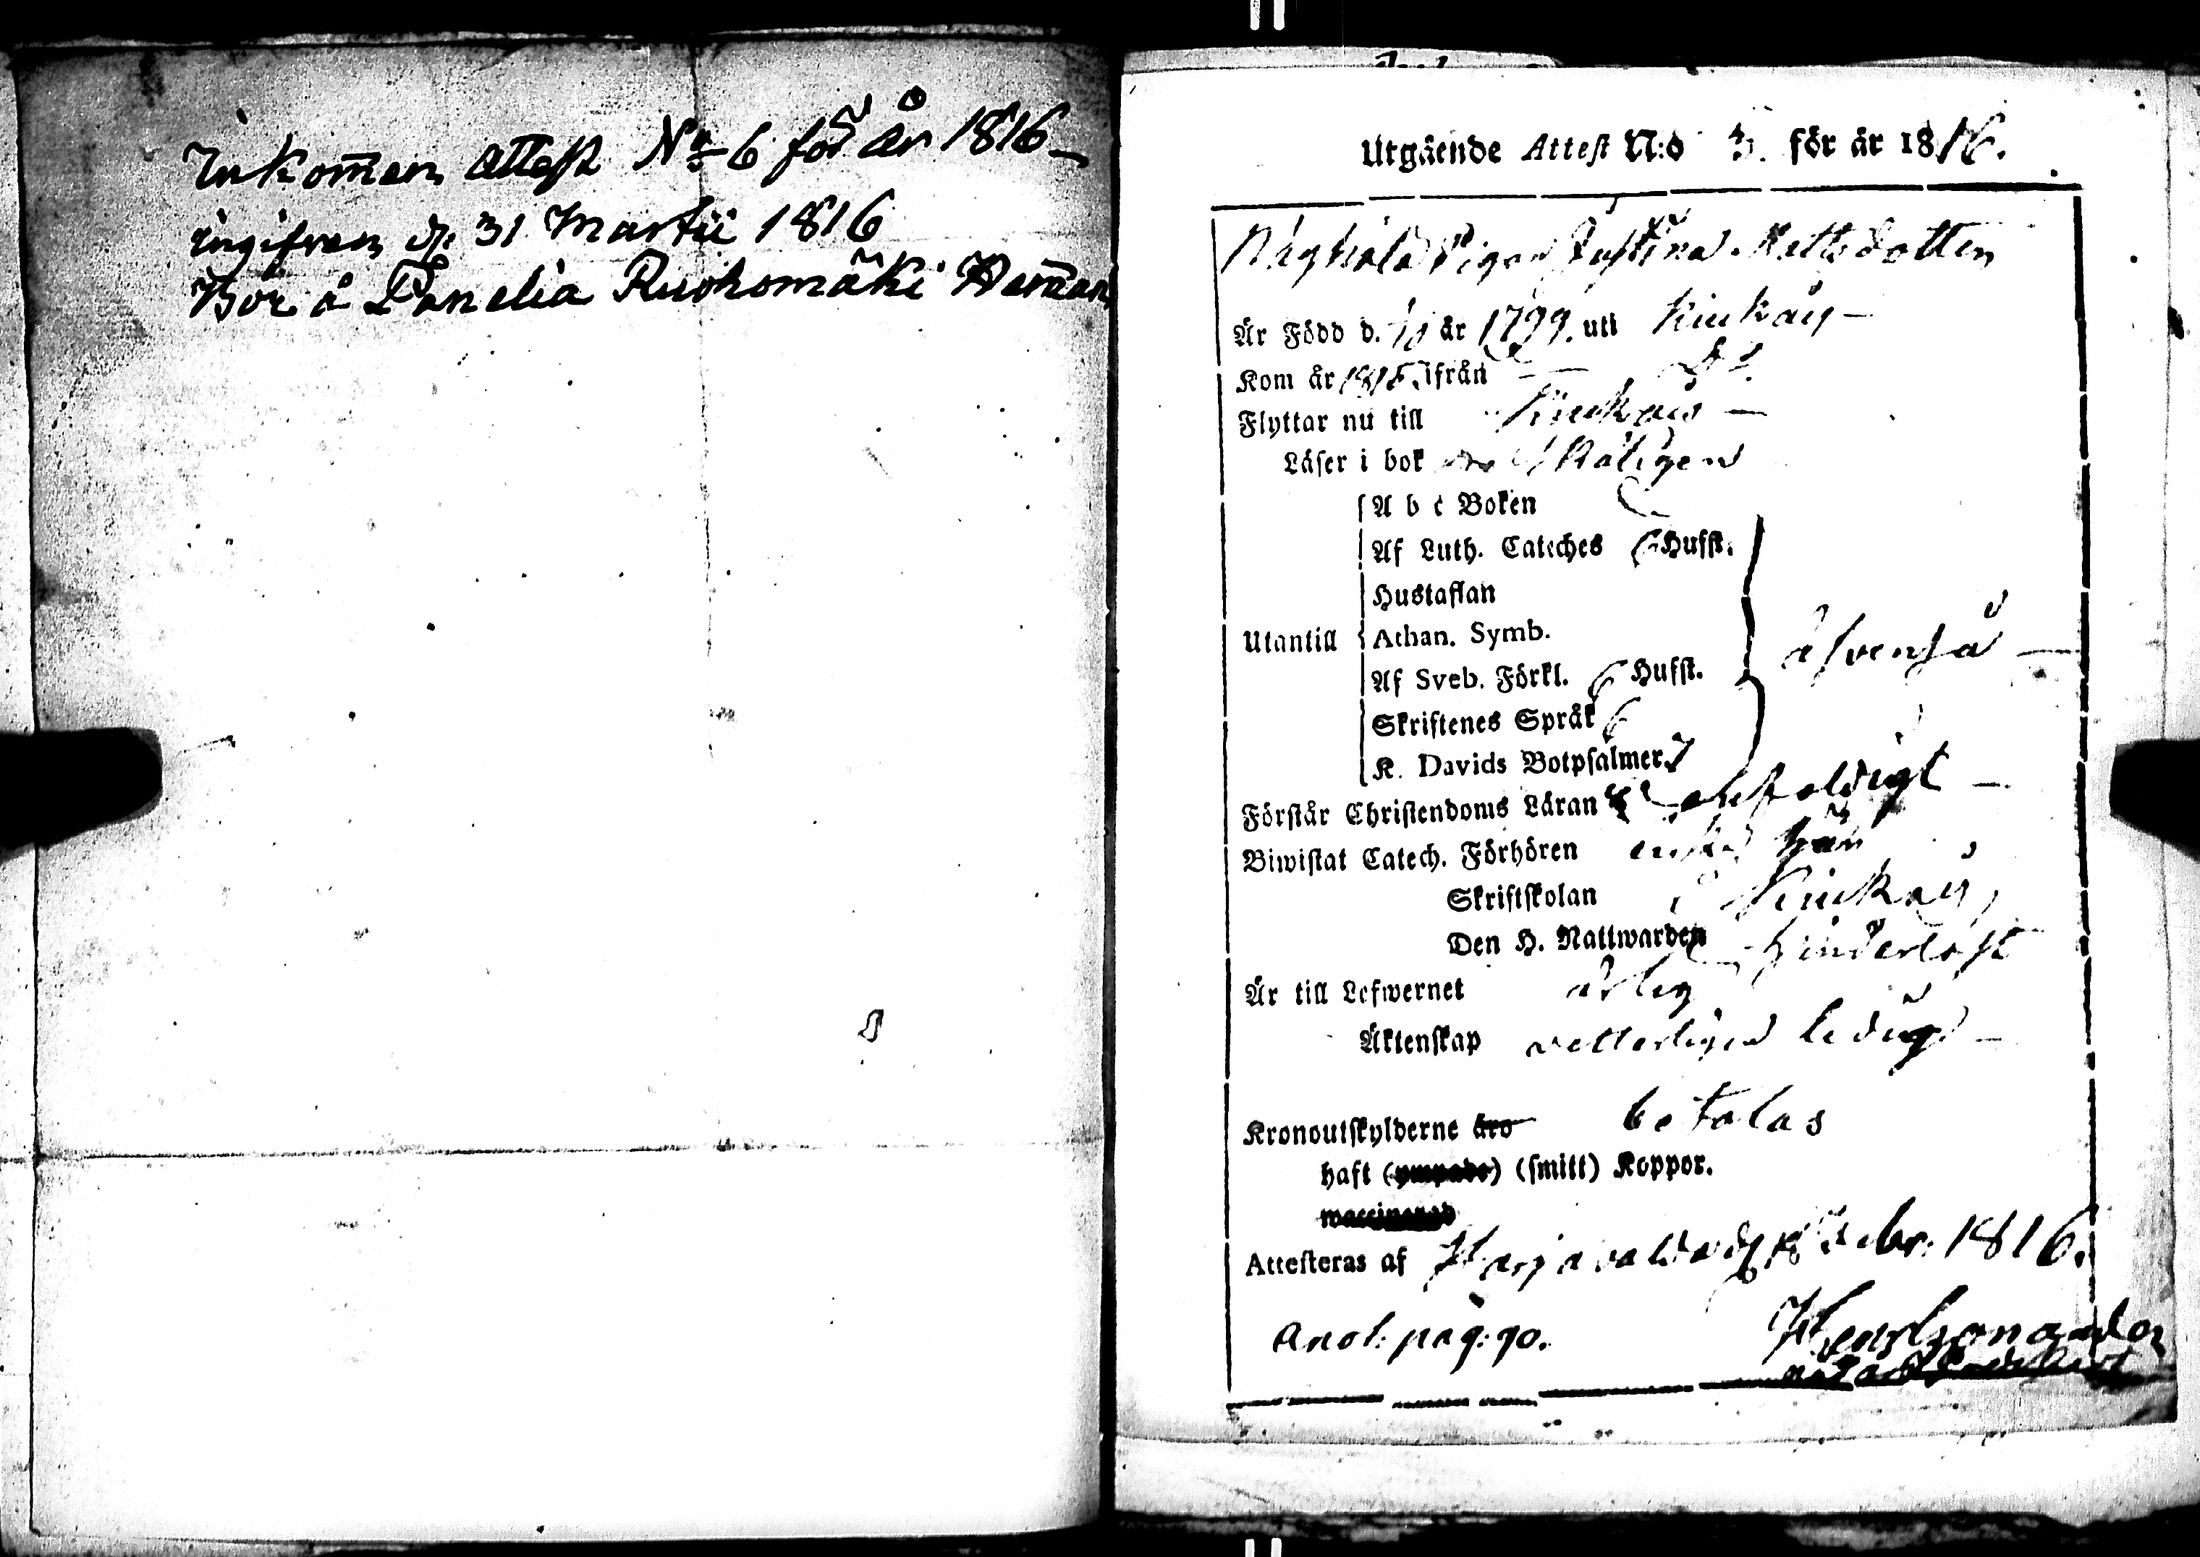 Inkom̄en Attest No 6 för år 1816 –
ingifven d. 31 Martii 1816
Bor å Panelia Ruohomäki Heman
Utgående Attest N:o 3. för år 1816.
Pigan Justina Mattsdotter
Är Född d. år 1799. uti Kiukais –
Kom år 1815. ifrån
Flyttar nu till Kiukais –
Läser i bok skäligen
A b c Boken
Af Luth. Cateches 6 Hufst.
Hustaflan
Utantill Athan. Symb. äfvenså –
Af Sveb. Förkl. 6 Hufst.
Skriftenes Språk 6
K. Davids Botpsalmer 7
Förstår Christendoms Läran enfaldigt –
Biwistat Catech. Förhören
Skriftskolan i Kiukais,
Den H. Nattwarden hinderlöst
Är till Lefwernet ärlig
Äktenskap vetterligen ledig –
Kronoutskylderne äro betalas
haft (ympade) (smitt) Koppor.
waccinerad
Attesteras af Harjavalda d. 1816.
Anot: pag: 90.